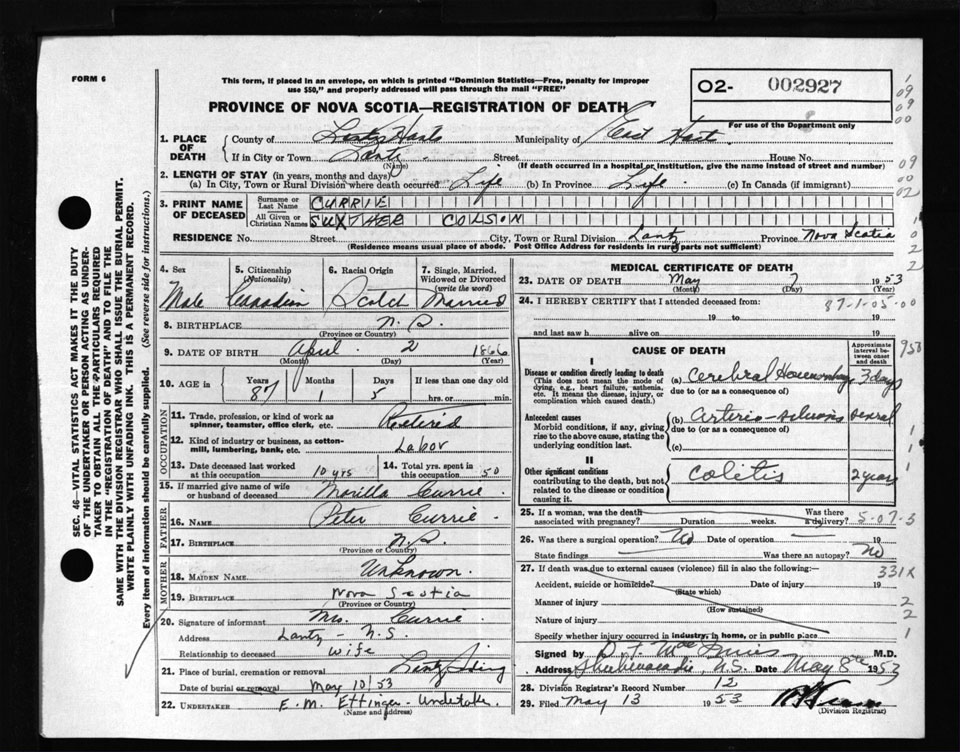 FORM 6
This form, if placed in an envelope, on which is printed "Dominion Statistics—Free, penalty for improper
use $50," and properly addressed will pass through the mail "FREE"
O2- 002927
PROVINCE OF NOVA SCOTIA—REGISTRATION OF DEATH
For use of the Department only
1. PLACE OF DEATH
County of Hants Municipality of East Hants.
If in City or Town Lantz. Street House No.
(Name) (If death occurred in a hospital or institution, give the name instead of street and number)
2. LENGTH OF STAY (in years, months and days)
(a) In City, Town or Rural Division where death occurred Life (b) In Province Life. (c) In Canada (if immigrant)
3. PRINT NAME OF DECEASED
Surname or Last Name CURRIE
All Given or Christian Names COLSON
RESIDENCE No. Street City, Town or Rural Division Lantz Province Nova Scotia
(Residence means usual place of abode. Post Office Address for residents in rural parts not sufficient)
SEC. 46—VITAL STATISTICS ACT MAKES IT THE DUTY
OF THE UNDERTAKER OR PERSON ACTING AS UNDER-
TAKER TO OBTAIN ALL THE PARTICULARS REQUIRED
IN THE "REGISTRATION OF DEATH" AND TO FILE THE
SAME WITH THE DIVISION REGISTRAR WHO SHALL ISSUE THE BURIAL PERMIT.
WRITE PLAINLY WITH UNFADING INK. THIS IS A PERMANENT RECORD.
Every item of information should be carefully supplied. (See reverse side for instructions.)
4. Sex Male
5. Citizenship (Nationality) Canadian
6. Racial Origin Scotch
7. Single, Married, Widowed or Divorced (write the word) Married
8. BIRTHPLACE N.S.
(Province or Country)
9. DATE OF BIRTH April 2 1866
(Month) (Day) (Year)
10. AGE in Years 87 Months 1 Days 5 If less than one day old
hrs. or min.
OCCUPATION
11. Trade, profession, or kind of work as spinner, teamster, office clerk, etc. Retired
12. Kind of industry or business, as cotton-mill, lumbering, bank, etc. Labor
13. Date deceased last worked at this occupation 10 yrs
14. Total yrs. spent in this occupation 50
15. If married give name of wife or husband of deceased Morilla Currie
FATHER
16. NAME Peter Currie
17. BIRTHPLACE N.S.
(Province or Country)
MOTHER
18. MAIDEN NAME Unknown.
19. BIRTHPLACE Nova Scotia
(Province or Country)
20. Signature of informant Mrs. Currie
Address Lantz - N.S.
Relationship to deceased Wife
21. Place of burial, cremation or removal Lantz Siding
Date of burial or removal May 10/53
22. UNDERTAKER E. M. Ettinger - Undertaker
(Name and address)
MEDICAL CERTIFICATE OF DEATH
23. DATE OF DEATH May 7 1953
(Month) (Day) (Year)
24. I HEREBY CERTIFY that I attended deceased from:
87-1-05-00
19 to 19
and last saw h alive on 19
CAUSE OF DEATH
Approximate interval between onset and death
I
Disease or condition directly leading to death
(This does not mean the mode of dying, e.g., heart failure, asthenia, etc. It means the disease, injury, or complication which caused death.)
(a) Cerebral Haemorrhage 3 days
due to (or as a consequence of)
Antecedent causes
Morbid conditions, if any, giving rise to the above cause, stating the underlying condition last.
(b) several
due to (or as a consequence of)
(c)
II
Other significant conditions
contributing to the death, but not related to the disease or condition causing it.
Colitis 2 years
25. If a woman, was the death associated with pregnancy? Duration weeks. Was there a delivery? 5-07-3
26. Was there a surgical operation? No Date of operation
State findings Was there an autopsy? No
27. If death was due to external causes (violence) fill in also the following: 331X
Accident, suicide or homicide? Date of injury 19
(State which)
Manner of injury
(How sustained)
Nature of injury
Specify whether injury occurred in industry, in home, or in public place
Signed by M.D.
Address Shubenacadie, N.S. Date May 8th 1953
28. Division Registrar's Record Number 12
29. Filed May 13 1953
(Division Registrar)